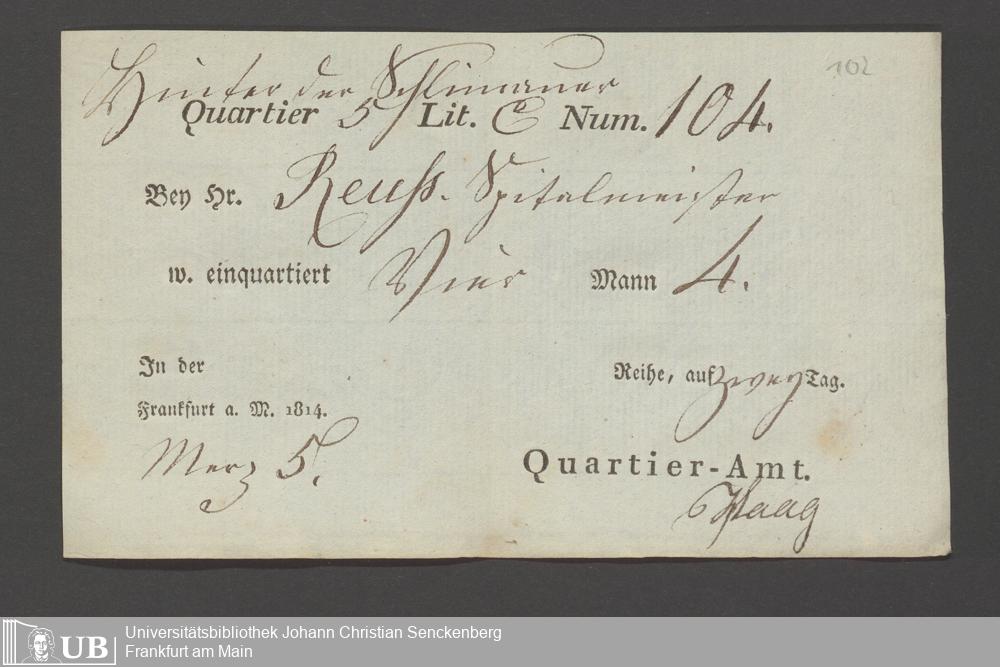 102
Hinter der Schlimauer
Quartier 5 Lit. C Num. 104.
Bey Hr. Reuss. Spitalmeister
w. einquartiert Vier Mann 4.
In der Reihe, auf zwey Tag.
Frankfurt a. M. 1814.
Merz 5.
Quartier-Amt.
Haag
UB
Universitätsbibliothek Johann Christian Senckenberg
Frankfurt am Main